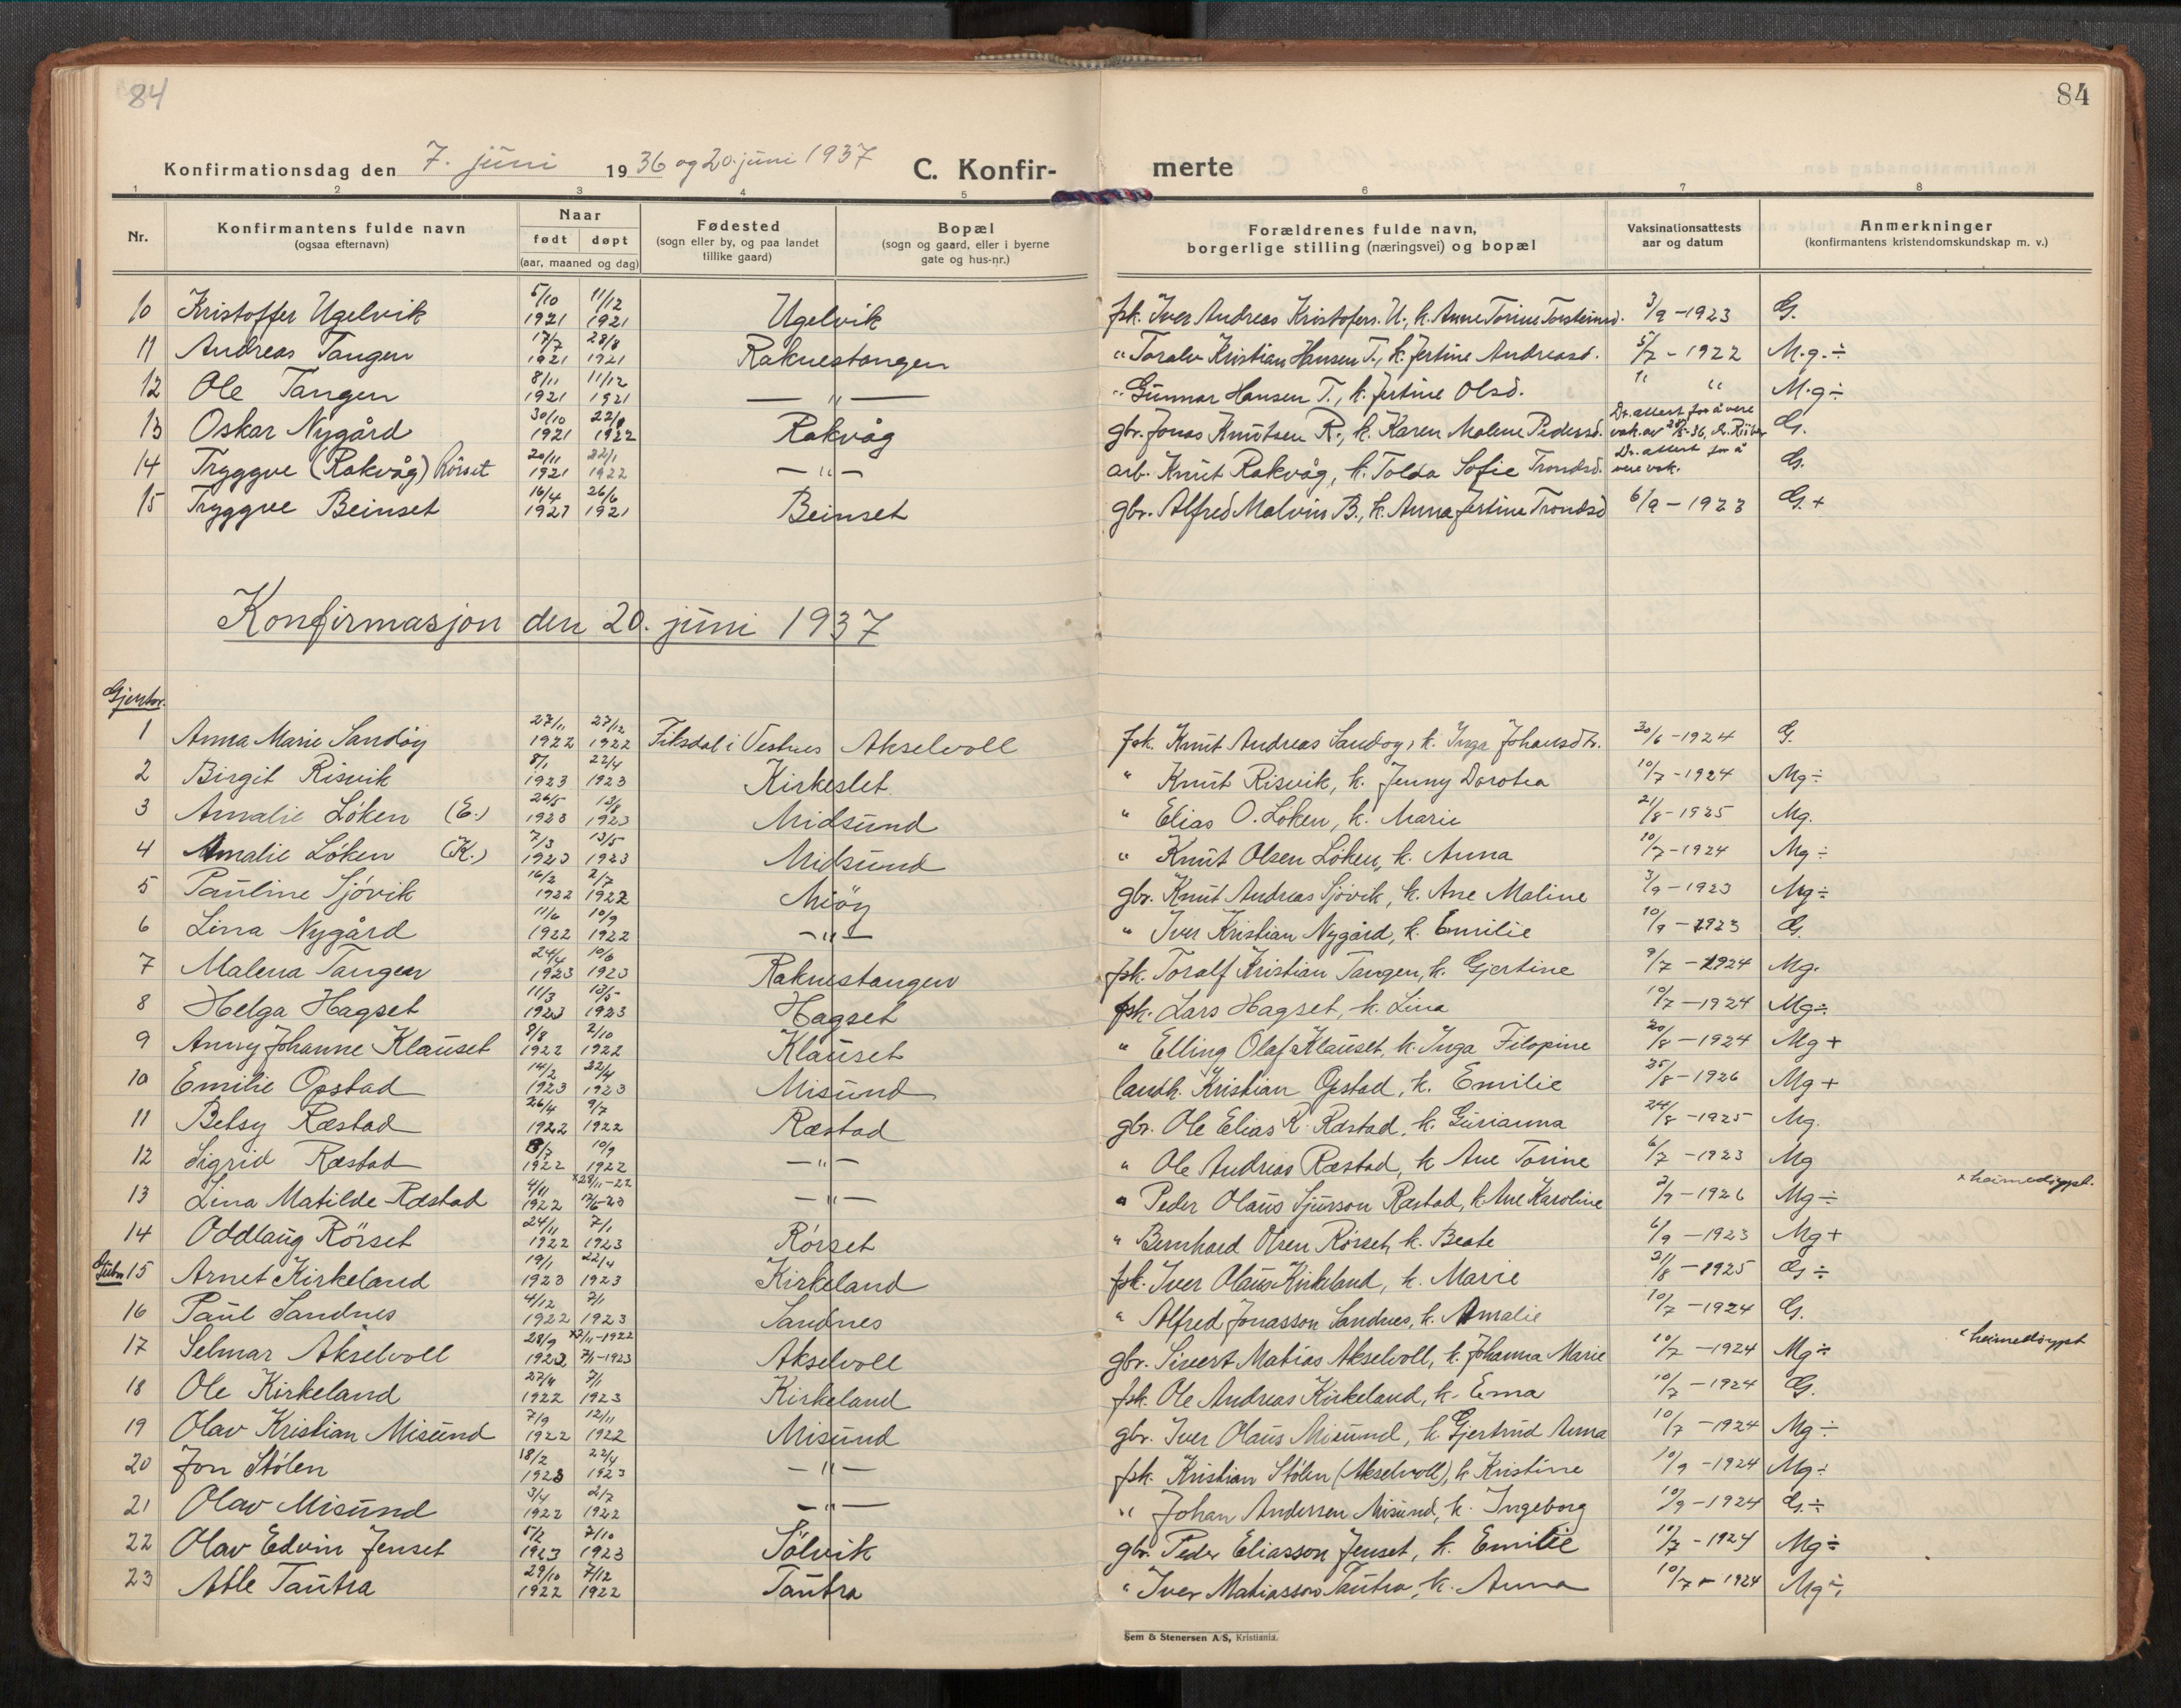 84
84
Konfirmationsdag den 7. juni 1936 og 20. juni 1937 C. Konfir- merte
1 2 3 4 5 6 7 8
Nr. Konfirmantens fulde navn (ogsaa efternavn) Naar født døpt (aar, maaned og dag) Fødested (sogn eller by, og paa landet tillike gaard) Bopæl (sogn og gaard, eller i byerne gate og hus-nr.) Forældrenes fulde navn, borgerlige stilling (næringsvei) og bopæl Vaksinationsattests aar og datum Anmerkninger (konfirmantens kristendomskundskap m. v.)
10 Kristoffer Ugelvik 5/10 1921 11/12 1921 Ugelvik fsk. Iver Andreas Kristofers. U., k. Anne Torine Torsteinsd. 3/9 - 1923 G.
11 Andreas Tangen 17/7 1921 28/8 1921 Raknestangen " Toralv Kristian Hansen T., k. Jertine Andreasd. 5/7 - 1922 M.g. ÷
12 Ole Tangen 8/11 1921 11/12 1921 — " — " Gunnar Hansen T., k. Jertine Olsd. " " M.g ÷
13 Oskar Nygård 30/10 1921 1922 Rakvåg gbr. Jonas Knutsen R., k. Karen Malene Pedersd. Dr. attest for å vere vak. av 36, G.
14 Tryggve (Rakvåg) Rörset 20/11 1921 22/1 1922 — " — arb. Knut Rakvåg, k. Tolda Sofie Trondsd. Dr. attest for å vere vak. G.
15 Tryggve Beinset 16/4 1921 26/6 1921 Beinset gbr. Alfred Malvin B., k. Anna Jertine Trondsd 6/9 - 1923 G. +
Konfirmasjon den 20. juni 1937
Gjentor.
1 Anna Marie Sandöy 27/11 1922 27/12 1922 Fiksdal i Vestnes Akselvoll fsk. Knut Andreas Sandoy, k. Inga Johansdtr. 30/6 - 1924 G.
2 Birgit Risvik 8/1 1923 22/4 1923 Kirkeslet " Knut Risvik, k. Jenny Dorotea 10/7 - 1924 Mg ÷
3 Amalie Löken (E.) 26/5 1923 1923 Midsund " Elias O. Löken, k. Marie 21/8 - 1925 Mg.
4 Amalie Löken (K.) 7/3 1923 13/5 1923 Midsund " Knut Olsen Löken, k. Anna 10/7 - 1924 Mg ÷
5 Pauline Sjövik 16/2 1922 2/7 1922 Miöy gbr. Knut Andreas Sjövik, k. Ane Maline 3/9 - 1923 Mg ÷
6 Lina Nygård 11/6 1922 10/9 1922 — " — " Iver Kristian Nygård, k. Emilie 10/9 - 1923 G.
7 Malena Tangen 24/4 1923 10/6 1923 Raknestangen fsk. Toralf Kristian Tangen, k. Gjertine 9/7 - 1924 Mg.
8 Helga Hagset 11/3 1923 13/5 1923 Hagset fsk. Lars Hagset, k. Lina 10/7 - 1924 Mg ÷
9 Anny Johanne Klauset 8/8 1922 2/10 1922 Klauset " Elling Olaf Klauset, k. Inga Filopine 20/8 - 1924 Mg +
10 Emilie Opstad 14/2 1923 22/4 1923 Misund landh. Kristian Opstad, k. Emilie 25/8 - 1926 Mg +
11 Betsy Ræstad 26/4 1922 9/7 1922 Ræstad gbr. Ole Elias K. Ræstad, k. Gurianna 24/8 - 1925 Mg.
12 Sigrid Ræstad 8/7 1922 10/9 1922 — " — " Ole Andreas Ræstad, k. Ane Torine 6/7 - 1923 Mg
13 Lina Matilde Ræstad 4/11 1922 x 28/11-22 17/6-23 — " — " Peder Olaus Sjurson Ræstad, k. Ane Karoline 2/9 - 1926 Mg ÷ x heimedöypt.
14 Oddlaug Rörset 24/11 1922 7/1 1923 Rörset " Bernhard Olsen Rörset, k. Beate 6/9 - 1923 Mg +
15 Arnet Kirkeland 19/1 1923 22/4 1923 Kirkeland fsk. Iver Olaus Kirkeland, k. Marie 21/8 - 1925 G ÷
16 Paul Sandnes 4/12 1922 7/1 1923 Sandnes " Alfred Jonasson Sandnes, k. Amalie 10/7 - 1924 G.
17 Selmar Akselvoll 28/9 1922 7/1-1923 Akselvoll gbr. Sivert Matias Akselvoll, k. Johanna Marie 10/7 - 1924 Mg ÷ x heimedöypt
18 Ole Kirkeland 1922 7/1 1923 Kirkeland fsk. Ole Andreas Kirkeland, k. Erna 10/7 - 1924 G.
19 Olav Kristian Misund 7/9 1922 12/11 1922 Misund gbr. Iver Olaus Misund, k. Gjertrud Anna 10/7 - 1924 Mg ÷
20 Jon Stölen 18/2 1923 22/4 1923 — " — fsk. Kristian Stölen (Akselvoll), k. Kristine 10/9 - 1924 Mg ÷
21 Olav Misund 3/4 1922 2/7 1922 — " — " Johan Andersen Misund, k. Ingeborg 10/9 - 1924 G. ÷
22 Olav Edvin Jenset 5/2 1923 7/10 1923 Sölvik gbr. Peder Eliasson Jenset, k. Emilie 10/7 - 1924 Mg ÷
23 Atle Tautra 29/10 1922 7/12 1922 Tautra " Iver Matiasson Tautra, k. Anna 10/7 - 1924 Mg ÷
Sem & Stenersen A/S, Kristiania.